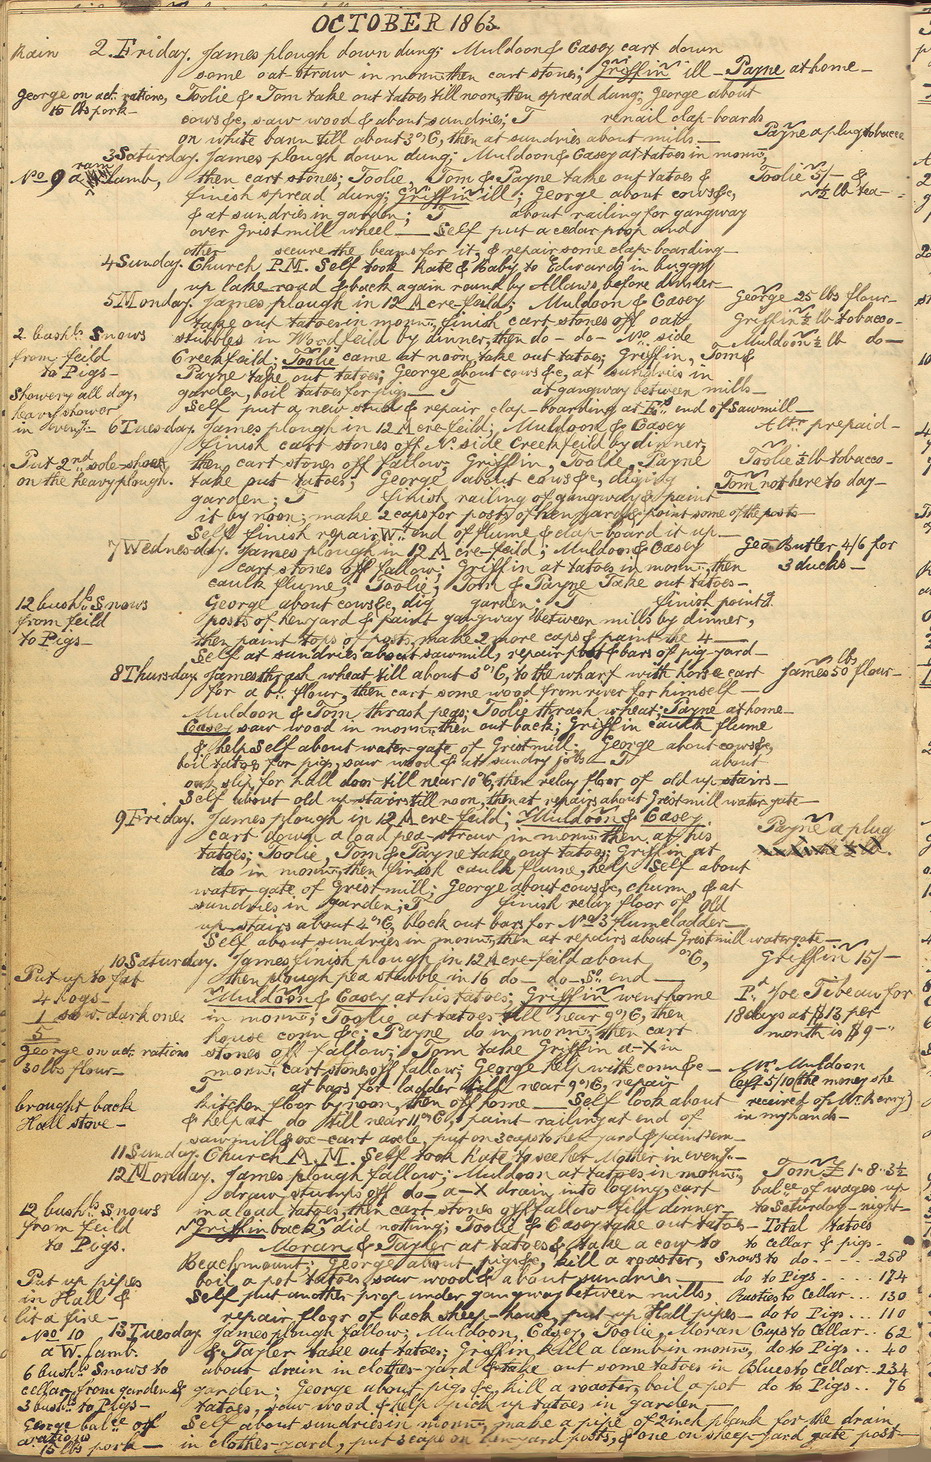 OCTOBER 1863
Rain 2. Friday. James plough down dung; Muldoon & Casey cart down
some oat straw in mornn. then cart stones; Griffin ill — Payne at home —
George on act. rations, Toolie & Tom take out tatoes till noon, then spread dung; George about
15 lbs pork — cows &c, saw wood & about sundries; T renail clap-boards
on white barn till about 3 o'C, then at sundries about mills — Payne a plug tobacco
3 Saturday. James plough down dung; Muldoon & Casey at tatoes in mornn,
No 9 a ram Lamb, then cart stones; Toolie, Tom & Payne take out tatoes & Toolie 5/- &
finish spread dung; Griffin ill; George about cows &c, ½ lb tea —
& at sundries in garden; T about railing for gangway
over Gristmill wheel — Self put a cedar prop and
other secure the beams for it; & repair some clap-boarding —
4 Sunday. Church P.M. Self took Kate & Baby to Edwards in buggy
up lake road & back again round by Allows, before dinner —
5 Monday. James plough in 12 Acre-feild; Muldoon & Casey George 25 lbs flour —
take out tatoes in mornn, finish cart stones off oat Griffin ½ lb tobacco —
2 bushls Snows stubbles in Woodfeild by dinner, then do — do — No side Muldoon ½ lb do —
from feild Creekfeild; Toolie came at noon, take out tatoes; Griffin, Tom &
to Pigs — Payne take out tatoes; George about cows &c, at sundries in
Showery all day, garden, boil tatoes for pigs — T at gangway between mills —
heavy shower Self put a new stud & repair clap-boarding at Et end of Sawmill —
in eveng — 6 Tuesday. James plough in 12 Acre-feild; Muldoon & Casey Altr prepaid —
finish cart stones off No side Creekfeild by dinner,
Put 2nd sole-shoe then cart stones off fallow; Griffin, Toolie, Payne Toolie ½ lb tobacco —
on the heavy plough. take out tatoes; George about cows &c, digging Tom not here to day —
garden; T finish railing of gangway & paint
it by noon; make 2 caps for posts of henyard & paint some of the posts —
Self finish repair Wt end of flume & clap-board it up —
7 Wednesday. James plough in 12 Acre-feild; Muldoon & Casey Geo Butler 4/6 for
cart stones off fallow; Griffin at tatoes in mornn, then 3 ducks —
caulk flume; Toolie, Tom & Payne take out tatoes —
12 bushls Snows George about cows &c, dig garden; T finish paintg
from feild posts of henyard & paint gangway between mills by dinner,
to Pigs — then paint tops of posts, make 2 more caps & paint the 4 —
Self at sundries about sawmill, repair post & bars of pig-yard —
8 Thursday. James thrash wheat till about 3 o'C, to the wharf with horse cart James 50 lbs flour —
for a br. flour, then cart some wood from river for himself —
Muldoon & Tom thrash peas; Toolie thrash wheat; Payne at home —
Casey saw wood in mornn, then out back; Griffin caulk flume
& help Self about water-gate of Gristmill; George about cows &c,
boil tatoes for pigs, saw wood & att sundry jobs — T about
out slip for hall door till near 10 o'C, then relay floor of old up stairs —
Self about old up-stairs till noon, then at repairs about Gristmill water gate —
9 Friday. James plough in 12 Acre-feild; Muldoon & Casey
cart down a load pea-straw in mornn, then at his Payne a plug
tatoes; Toolie, Tom & Payne take out tatoes; Griffin at
do in mornn, then finish caulk flume, help Self about
water-gate of Gristmill; George about cows &c, churn, & at
sundries in garden; T finish relay floor of old
up-stairs about 4 o'C, block out bars for No 3 flume ladder —
Self about sundries in mornn, then at repairs about Gristmill watergate —
10 Saturday. James finish plough in 12 Acre-feild about o'C, Griffin 15/-
Put up to fat then plough pea stubble in 16 do — do — So. end —
4 hogs — Muldoon & Casey at his tatoes; Griffin went home Pd Joe Tibeau for
1 sow, dark one in mornn; Toolie at tatoes till near 9 o'C, then 18 days at $13 per
5 house corn &c; Payne do in mornn, then cart month is $9 —
George on act. rations stones off fallow; Tom take Griffin a-X in
30 lbs flour — mornn, cart stones off fallow; George help with corn &c — Mr. Muldoon
T at bars for ladder till near 9 o'C, repair left 5/10 (the money she
brought back kitchen floor by noon, then off home — Self look about received of Mr. Kerry)
Hall stove — & help at do till near 11 o'C, paint railing at end of in my hands —
sawmill & ox-cart axle, put on 3 caps to hen yard & paint 'em —
11 Sunday. Church A.M. Self took Kate to see her Mother in eveng —
12 Monday. James plough fallow; Muldoon at tatoes in mornn, Tom £1-8-3½
draw stumps off do — a-X drain into loging, cart balce of wages up
12 bushls Snows in a load tatoes, then cart stones off fallow till dinner to Saturday-night —
from feild Griffin back, did nothing; Toolie & Casey take out tatoes — Total tatoes
to Pigs. Moran & Tayler at tatoes & take a cow to to cellar & pigs —
Beachmount; George about pigs &c, kill a rooster, Snows to do . . . . 258
Put up pipes boil a pot tatoes, saw wood & about sundries — do to Pigs . . . . 174
in Hall & Self put another prop under gangway between mills, Rusties to Cellar . . . 130
lit a fire — repair flogs of back sheep-house, put up Hall pipes — do to Pigs . . . 110
No 10 13 Tuesday. James plough fallow; Muldoon, Casey, Toolie, Moran Cups to Cellar . . 62
a W. Lamb. & Tayler take out tatoes; Griffin kill a lamb in mornn, do to Pigs . . 40
6 bushls Snows to about drain in clothes-yard & take out some tatoes in Blues to Cellar . . 234
cellar, from garden & garden; George about pigs &c, kill a rooster, boil a pot do to Pigs . . 76
3 bushls to Pigs — tatoes, saw wood & help pick up tatoes in garden
George balce off Self about sundries in mornn, make a pipe of 2 inch plank for the drain
rations
15 lbs pork — in clothes-yard, put 3 caps on hen-yard posts, & one on sheep-yard gate post —